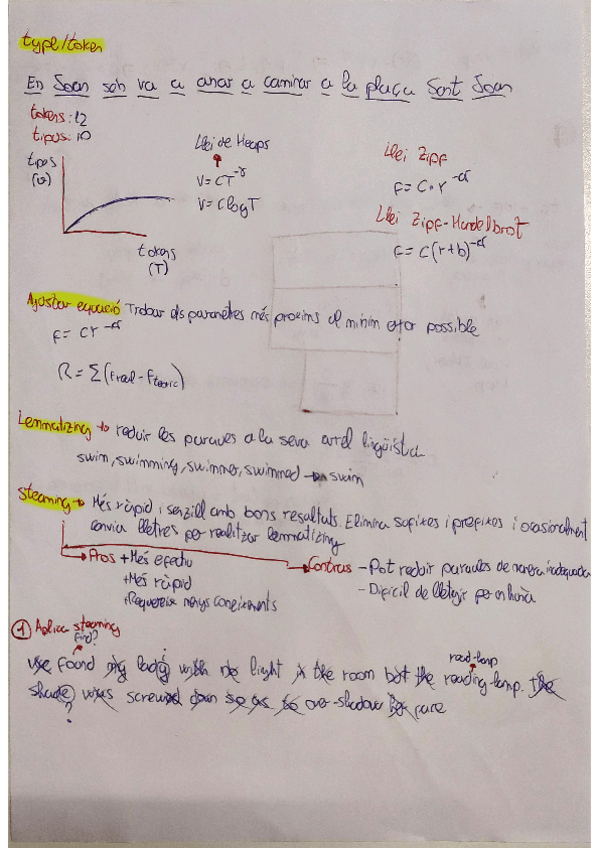 type/token
En Joan se'n va a anar a caminar a la plaça Sant Joan
tokens: 12
tipus: 10
tipos
(v)
tokens
(T)
Llei de Heaps
V = CT^-γ
V = C log T
Llei Zipf
F = C · r^-α
Llei Zipf-Mandelbrot
F = C(r+b)^-α
Ajustar equació Trobar els paràmetres més proxims al minim error possible
F = Cr^-α
R = Σ(Freal - Fteoric)
Lemmatizing → reduir les paraules a la seva arrel lingüísta
swim, swimming, swimmer, swimmed → swim
Steaming → Més ràpid i senzill amb bons resultats. Elimina sufixes i prefixes i ocasionalment
canvia lletres per realitzar lemmatizing
→ Pros + Més efectiu
+ Més ràpid
+ Requereix menys coneixements
→ Contras - Pot reduir paraules de manera inadequada
- Difícil de llegir per en humà
① Aplica steaming
find?
i
read-lamp
We found my lady with no light in the room but the reading-lamp. The
shade was screwed down so as to over-shadow her face
?